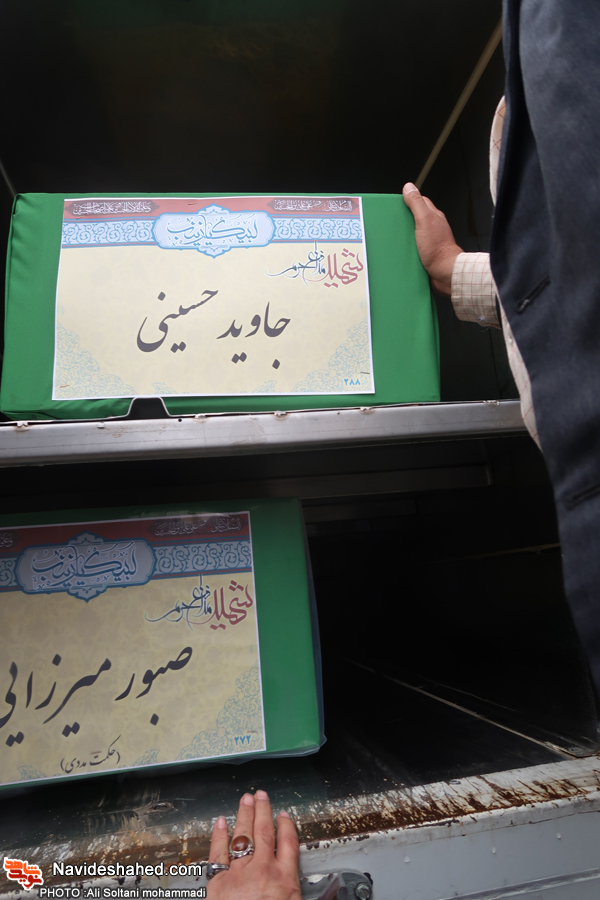 لبیک یا زینب
شهید مدافع حرم
جاوید حسینی
۲۸۸
لبیک یا زینب
شهید مدافع حرم
صبور میرزایی
(حکمت مددی)
۲۷۲
Navideshahed.com
PHOTO :Ali Soltani mohammadi